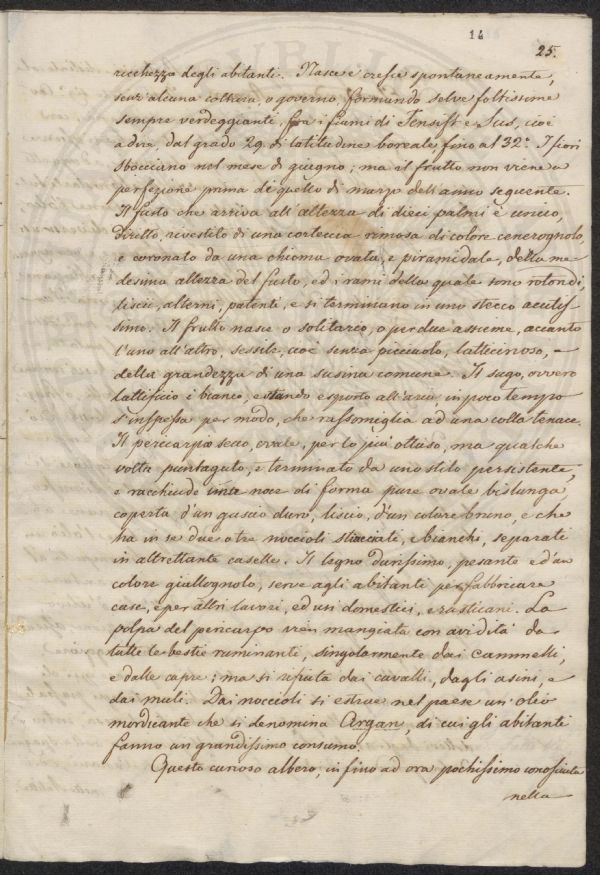 14
25.
ricchezza degli abitanti. Nasce e cresce spontaneamente,
senz'alcuna coltura, o governo, formando selve foltissime
sempre verdeggiante, fra i fiumi di Tensift e Sus, cioè
a dire, dal grado 29. di latitudine boreale, fino al 32.° I fiori
sbocciano nel mese di giugno; ma il frutto non viene a
perfezione prima di quello di marzo dell'anno seguente.
Il fusto che arriva all'altezza di dieci palmi è unico,
diretto, rivestito di una corteccia rimosa di colore cenerognolo,
e coronato da una chioma ovata, e piramidale, della me-
desima altezza del fusto, ed i rami della quale sono rotondi,
liscii, alterni, patenti, e si terminano in uno stecco acutis-
simo. Il frutto nasce o solitario, o per due assieme, accanto
l'uno all'altro, sessile, cioè senza picciuolo, latticinoso, e
della grandezza di una susina comune. Il sugo, ovvero
lattificio è bianco, e stando esposto all'aria in poco tempo
s'inspessa per modo, che rassomiglia ad una colla tenace.
Il pericarpio secco, ovale, per lo più ottuso, ma qualche
volta puntaguto, è terminato da uno stilo persistente,
e racchiude una noce di forma pure ovale bislunga,
coperta d'un guscio duro, liscio, d'un colore bruno, e che
ha in se due o tre noccioli stiacciati, e bianchi, separati
in altrettante casette. Il legno durissimo, pesante e d'un
colore giallognolo, serve agli abitanti per fabbricare
case, e per altri lavori, ed usi domestici, e rusticani. La
polpa del pericarpo vien mangiata con avidità da
tutte le bestie ruminanti, singolarmente dai cammelli,
e dalle capre; ma si rifiuta dai cavalli, dagli asini, e
dai muli. Dai noccioli si estrae nel paese un olio
mordicante che si denomina Argan, di cui gli abitanti
fanno un grandissimo consumo.
Questo curioso albero, in fino ad ora pochissimo conosciuto
nella